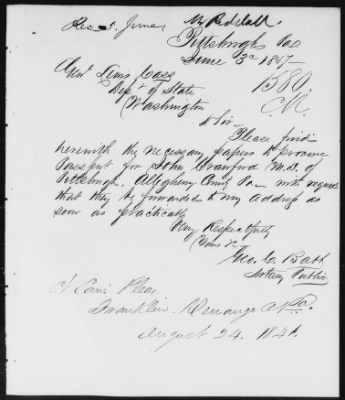 Rec 3. June
Pittsburgh Pa
June 3d 1857
Genl Lewis Cass
1580
Dept of State
Washington
Sir
Please find
herewith the necessary papers to procure
Passport for John Crawford M.D. of
Pittsburgh, Allegheny County Pa with request
that they be forwarded to my address as
soon as practicable
Very Respectfully
Yours &c
Geo. C. Batt
Notary Public
Ct Com. Pleas.
Franklin. Venango Co Pa.
August 24. 1841.